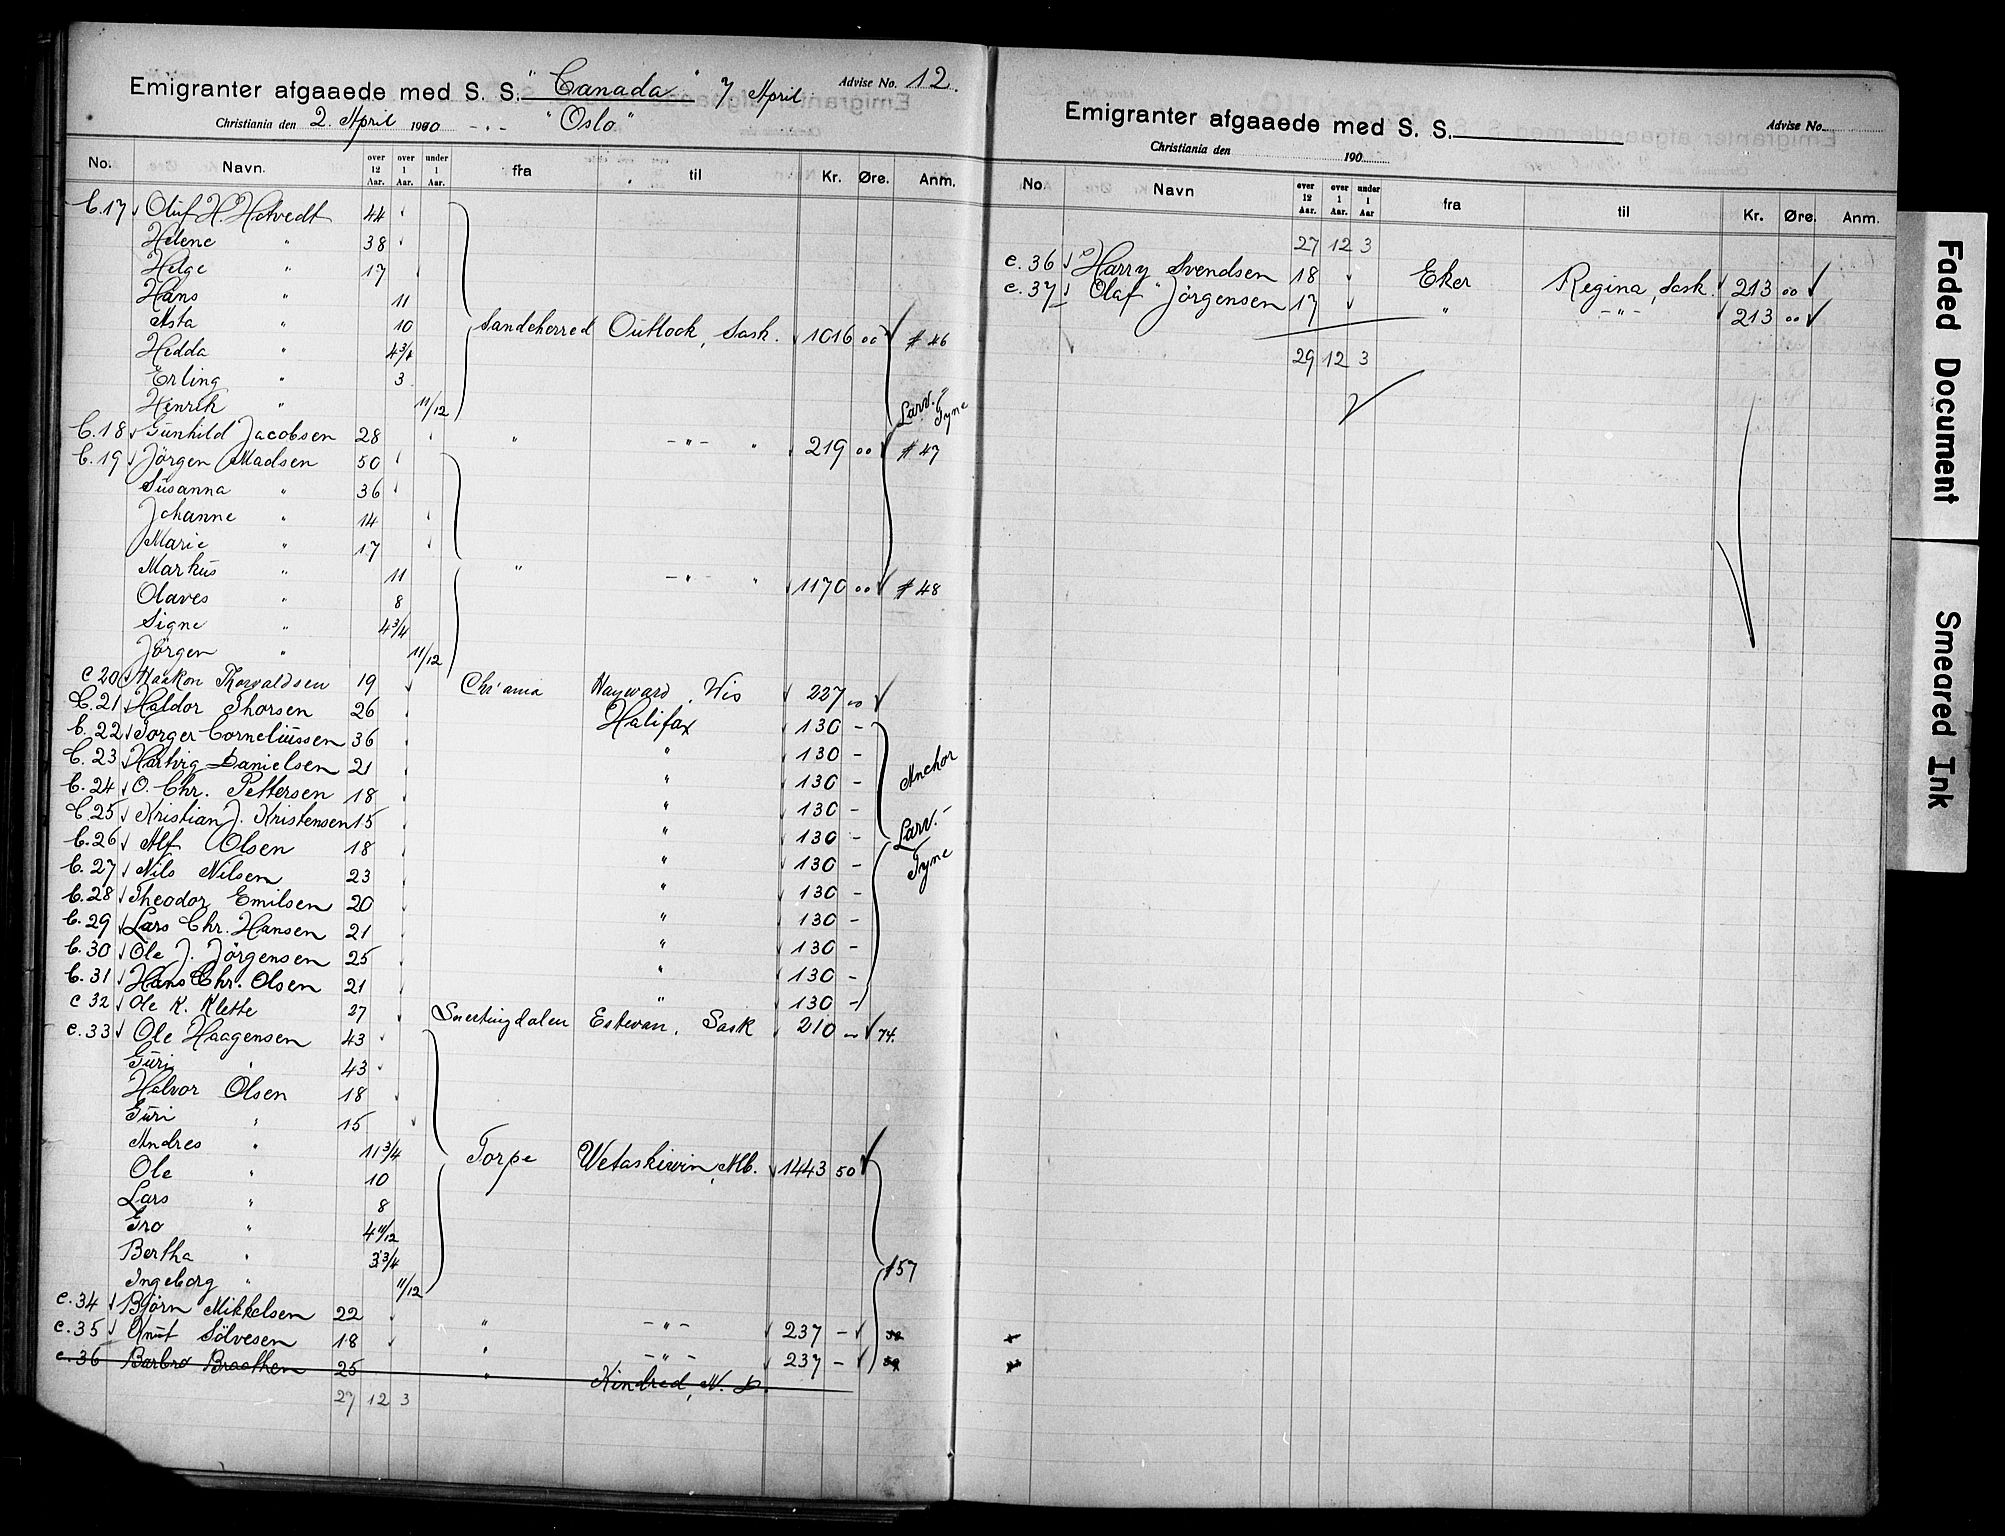 Emigranter afgaaede med S. S. "Canada" 7 April Advise No. 12.
Christiania den 2. April 1910 - " - "Oslo"
No. Navn. over 12 Aar. over 1 Aar. under 1 Aar. fra til Kr. Øre. Anm.
C.17 Oluf H. Hotvedt 44
Helene " 38
Helge " 17
Hans " 11
Asta " 10 Sandeherred Outlook, Sask. 1016 00 # 46
Hedda " 4 3/4
Erling " 3
Henrik " 11/12 Larv. "Tyne
C.18 Gunhild Jacobsen 28 " - " - " 219 00 # 47
C.19 Jörgen Madsen 50
Susanna " 36
Johanne " 14
Marie " 17
Markus " 11 " - " - " 1170 00 # 48
Olaves " 8
Signe " 4 3/4
Jörgen " 11/12
C 20 Haakon Thorvaldsen 19 Chr'ania Hayward, Wis 227 00
C.21 Haldor Thorsen 26 Halifax 130 -
C.22 Torger Corneliussen 36 " 130 -
C.23 Hartvig Danielsen 21 " 130 - Anchor
C.24 O. Chr. Pettersen 18 " 130 -
C.25 Kristian J. Kristensen 15 " 130 - Larv. -
C.26 Alf Olsen 18 " 130 - Tyne
C.27 Nils Nilsen 23 " 130 -
C.28 Theodor Emilsen 20 " 130 -
C.29 Lars Chr. Hansen 21 " 130 -
C.30 Ole J. Jörgensen 25 " 130 -
C.31 Hans Chr. Olsen 21 " 130 -
C 32 Ole K. Klette 27 Snertingdalen Estevan, Sask 210 - 74.
C.33 Ole Haagensen 43
Guri " 43
Halvor Olsen 18
Guri " 15
Andres " 11 3/4 Torpe Wetaskiwin, Alb. 1443 50
Ole " 10
Lars " 8
Gro " 4 11/12
Bertha " 3 3/4
Ingeborg " 11/12 #57
C.34 Björn Mikkelsen 22 " - " - 237 -
C.35 Knut Sölvesen 18 " - " - 237 -
C.36 Barbro Braathen 25 " Kindred, N. D.
27 12 3
Emigranter afgaaede med S. S. Advise No.
Christiania den 190
No. Navn over 12 Aar. over 1 Aar. under 1 Aar fra til Kr. Øre. Anm.
27 12 3
C.36 Harry Svendsen 18 Eker Regina, Sask. 213 00
C.37 Olaf Jörgensen 17 " - " - 213 00
29 12 3
Faded Document
Smeared Ink